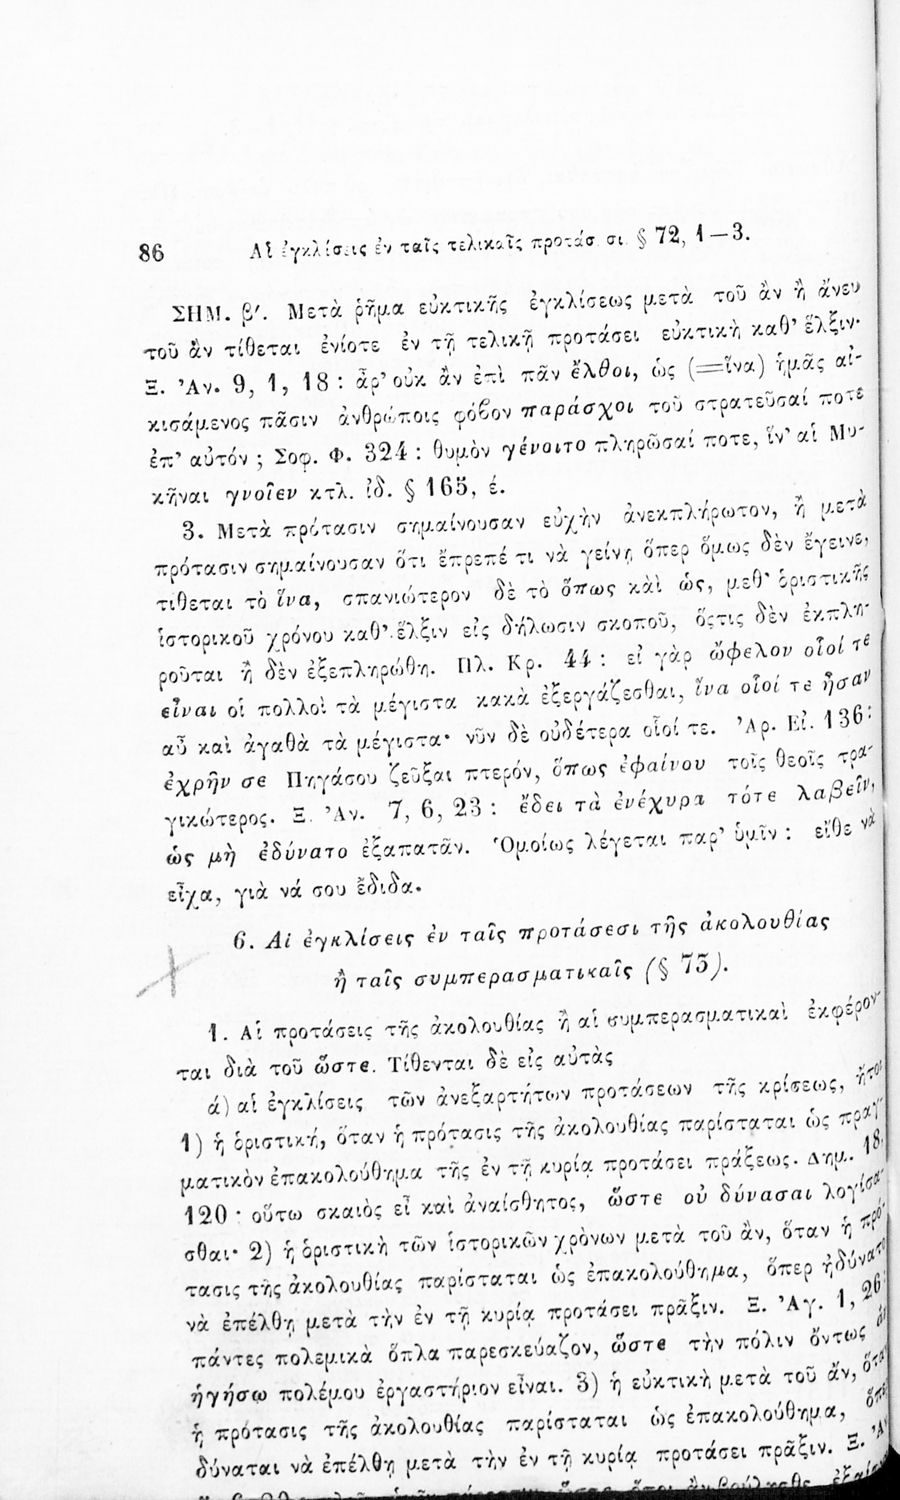 86 Αἱ ἐγκλίσεις ἐν ταῖς τελικαῖς προτάσ σι. § 72, 1—3.
ΣΗΜ. β′. Μετὰ ῥῆμα εὐκτικῆς ἐγκλίσεως μετὰ τοῦ ἂν ἢ ἄνευ
τοῦ ἂν τίθεται ἐνίοτε ἐν τῇ τελικῇ προτάσει εὐκτικὴ καθ’ ἕλξιν·
Ξ. Ἀν. 9, 1, 18 : ἆρ’ οὐκ ἂν ἐπὶ πᾶν ἔλθοι, ὡς (=ἵνα) ἡμᾶς αἰ-
κισάμενος πᾶσιν ἀνθρώποις φόβον παράσχοι τοῦ στρατεῦσαί ποτε
ἐπ’ αὐτόν ; Σοφ. Φ. 324 : θυμὸν γένοιτο πληρῶσαί ποτε, ἵν’ αἱ Μυ-
κῆναι γνοῖεν κτλ. ἰδ. § 165, έ.
3. Μετὰ πρότασιν σημαίνουσαν εὐχὴν ἀνεκπλήρωτον, ἢ μετὰ
πρότασιν σημαίνουσαν ὅτι ἔπρεπέ τι νὰ γείνῃ ὅπερ ὅμως δὲν ἔγεινε,
τίθεται τὸ ἵνα, σπανιώτερον δὲ τὸ ὅπως καὶ ὡς, μεθ’ ὁριστικῆς
ἱστορικοῦ χρόνου καθ’ ἕλξιν εἰς δήλωσιν σκοποῦ, ὅςτις δὲν ἐκπλη-
ροῦται ἢ δὲν ἐξεπληρώθη. Πλ. Κρ. 44 : εἰ γὰρ ὤφελον οἷοί τε
εἶναι οἱ πολλοὶ τὰ μέγιστα κακὰ ἐξεργάζεσθαι, ἵνα οἷοί τε ἦσαν
αὖ καὶ ἀγαθὰ τὰ μέγιστα· νῦν δὲ οὐδέτερα οἷοί τε. Ἀρ. Εἰ. 136:
ἐχρῆν σε Πηγάσου ζεῦξαι πτερόν, ὅπως ἐφαίνου τοῖς θεοῖς τρα-
γικώτερος. Ξ. Ἀν. 7, 6, 23 : ἔδει τὰ ἐνέχυρα τότε λαβεῖν,
ὡς μὴ ἐδύνατο ἐξαπατᾶν. Ὁμοίως λέγεται παρ’ ὑμῖν : εἴθε νὰ
εἶχα, γιὰ νά σου ἔδιδα.
6. Αἱ ἐγκλίσεις ἐν ταῖς προτάσεσι τῆς ἀκολουθίας
ἢ ταῖς συμπερασματικαῖς (§ 73).
1. Αἱ προτάσεις τῆς ἀκολουθίας ἢ αἱ συμπερασματικαὶ ἐκφέρον-
ται διὰ τοῦ ὥστε. Τίθενται δὲ εἰς αὐτὰς
ά) αἱ ἐγκλίσεις τῶν ἀνεξαρτήτων προτάσεων τῆς κρίσεως, ἤτοι
1) ἡ ὁριστική, ὅταν ἡ πρότασις τῆς ἀκολουθίας παρίσταται ὡς πραγ-
ματικὸν ἐπακολούθημα τῆς ἐν τῇ κυρίᾳ προτάσει πράξεως. Δημ. 18,
120 : οὕτω σκαιὸς εἶ καὶ ἀναίσθητος, ὥστε οὐ δύνασαι λογίσα-
σθαι· 2) ἡ ὁριστικὴ τῶν ἱστορικῶν χρόνων μετὰ τοῦ ἄν, ὅταν ἡ πρό-
τασις τῆς ἀκολουθίας παρίσταται ὡς ἐπακολούθημα, ὅπερ ἠδύνατο
νὰ ἐπέλθῃ μετὰ τὴν ἐν τῇ κυρίᾳ προτάσει πρᾶξιν. Ξ. Ἀγ. 1, 26:
πάντες πολεμικὰ ὅπλα παρεσκεύαζον, ὥστε τὴν πόλιν ὄντως ἂν
ἡγήσω πολέμου ἐργαστήριον εἶναι. 3) ἡ εὐκτικὴ μετὰ τοῦ ἄν, ὅταν
ἡ πρότασις τῆς ἀκολουθίας παρίσταται ὡς ἐπακολούθημα, ὅπερ
δύναται νὰ ἐπέλθῃ μετὰ τὴν ἐν τῇ κυρίᾳ προτάσει πρᾶξιν. Ξ. Ἀν